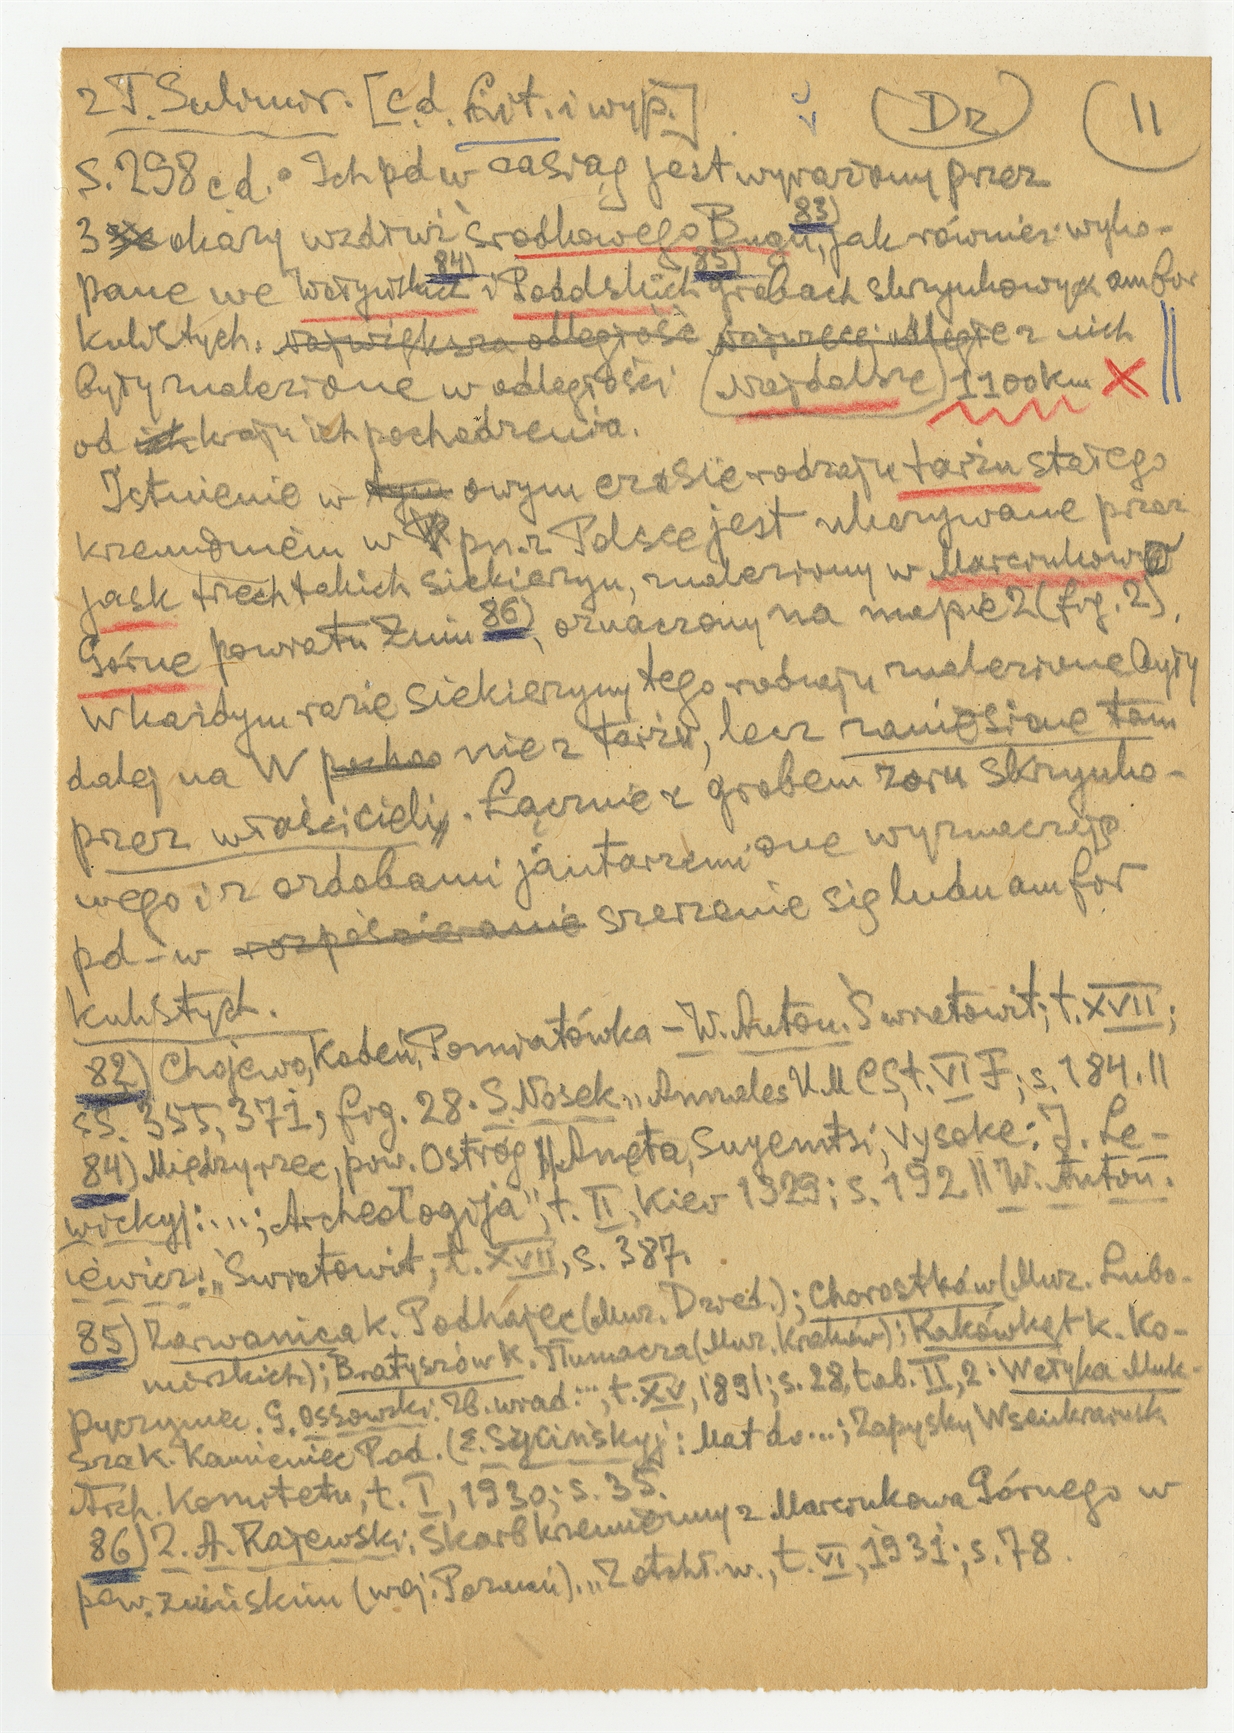 z T. Sulimir. [c.d. Lit. i wyp.] (Dz) (11
S. 298 cd. Ich pd w zasiąg jest wyrażony przez
3 okazy wzdłuż środkowego Bugu, 83) jak również wyko-
pane we Wołyńskich 84) i Podolskich 85) grobach skrzynkowych amfor
kulistych. największa odległość najwięcej odległe z nich
były znalezione w odległości (Najdalsze) 1100 km X
od kraju ich pochodzenia.
Istnienie w tym owym czasie rodzaju targu stałego
krzemieniem w pn.z Polsce jest ukazywane przez
jask trzech takich siekierzyn, znaleziony w Marcinkowo
Górne powiatu Żnin 86), oznaczony na mapie 2 (fig. 2).
W każdym razie siekierzyny tego rodzaju znalezione były
dalej na W pocho nie z targu, lecz zaniesione tam
przez właścicieli. Łącznie z grobem zoru skrzynko-
wego i z ozdobami jantarzemi one wyznaczają
pd-w rozpościeranie szerzenie się ludu amfor
kulistych.
82) Chojewo, Kodeń, Poniatówka - W. Anton. Światowit; t. XVII;
ss. 355, 371, fig. 28. S. Nosek „Annales U M C S, t. VI F; s. 184. ||
84) Międzyrzec, pow. Ostróg || Aneta, Suyemtsi, Vysoke: J. Le-
wickyj: ...; Archeołogija", t. II, Kiev 1929; s. 192 || W. Anton.
iewicz: „Światowit, t. XVII, s. 387.
85) Zarwanica k. Podhajec (Muz. Dzied.); Chorostków (Muz. Lubo-
mirskich); Bratyszów k. Tłumacza (Muz. Kraków); Kakówkąt k. Ko-
pyczyniec. G. Ossowski. Zb. wiad..., t. XV, 1891; s. 28, tab. II, 2. Wełyka Muk-
sza k. Kamieniec Pod. (E. Sycińskyj: Mat do ...; Zapysky Wseukrainsk
Arch. Komitetu, t. I, 1930; s. 35.
86) Z. A. Rajewski. Skarb krzemienny z Marcinkowa Górnego w
pow. żnińskim (woj. Poznań). „Z otchł. w., t. VI, 1931; s. 78.